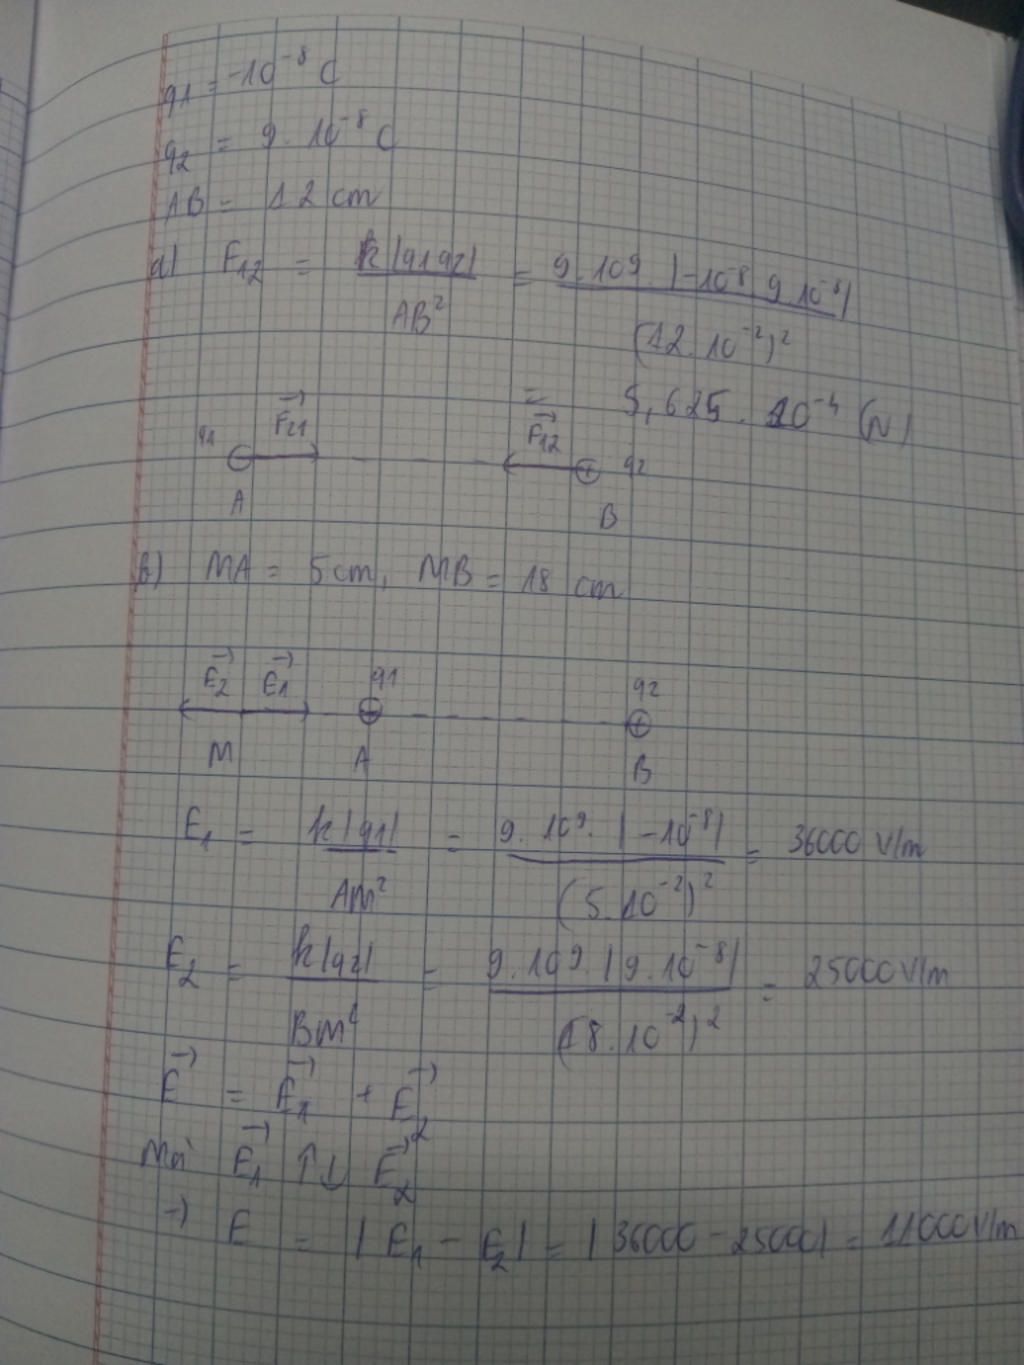 q1 = -10⁻⁸ C
q2 = 9.10⁻⁸ C
AB = 12 cm
a) F12 = k|q1q2| / AB² = 9.10⁹.|-10⁻⁸.9.10⁻⁸| / (12.10⁻²)²
= 5,625.10⁻⁴ (N)
F21 F12
q1 q2
A B
b) MA = 5cm, MB = 18 cm
E2 E1 q1 q2
M A B
E1 = k|q1| / AM² = 9.10⁹.|-10⁻⁸| / (5.10⁻²)² = 36000 V/m
E2 = k|q2| / BM² = 9.10⁹.|9.10⁻⁸| / (18.10⁻²)² = 25000 V/m
E = E1 + E2
Mà E1 ↑↓ E2
→ E = |E1 - E2| = |36000 - 25000| = 11000V/m